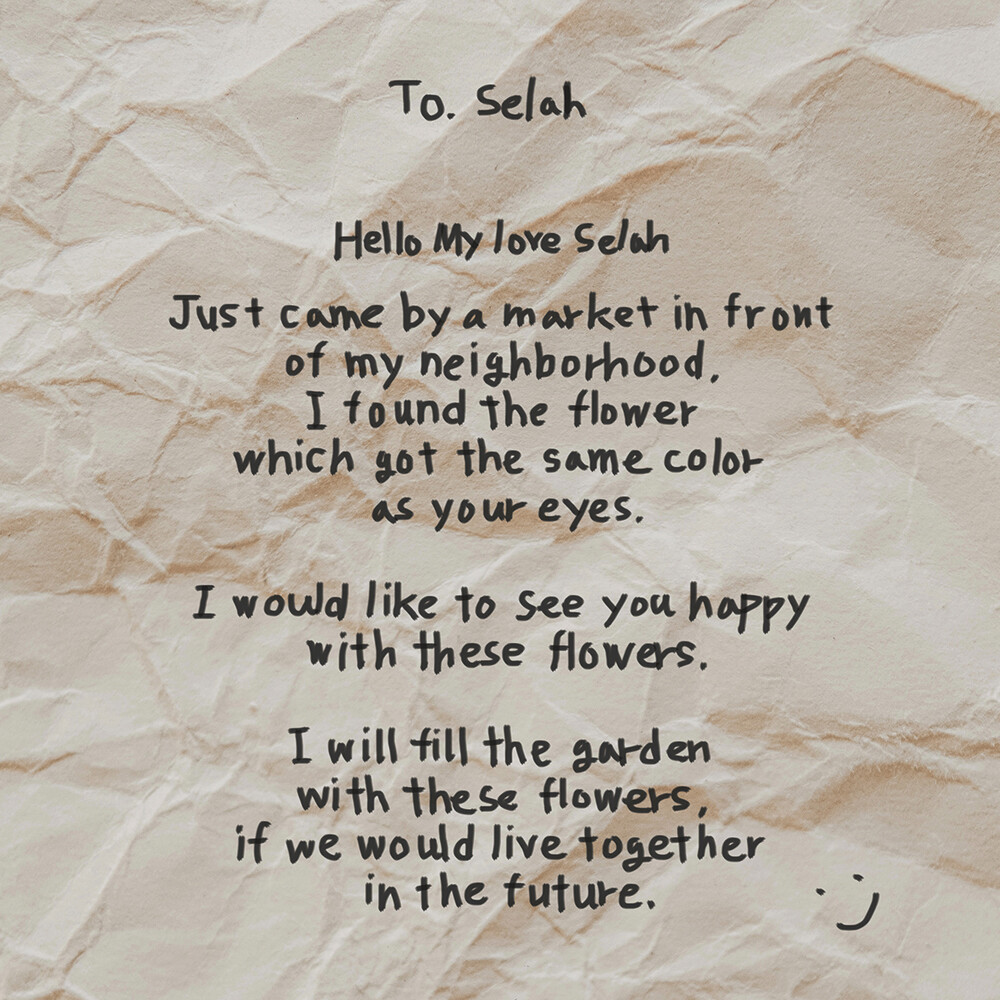 To. Selah
Hello My love Selah
Just came by a market in front
of my neighborhood,
I found the flower
which got the same color
as your eyes.
I would like to see you happy
with these flowers.
I will fill the garden
with these flowers,
if we would live together
in the future.